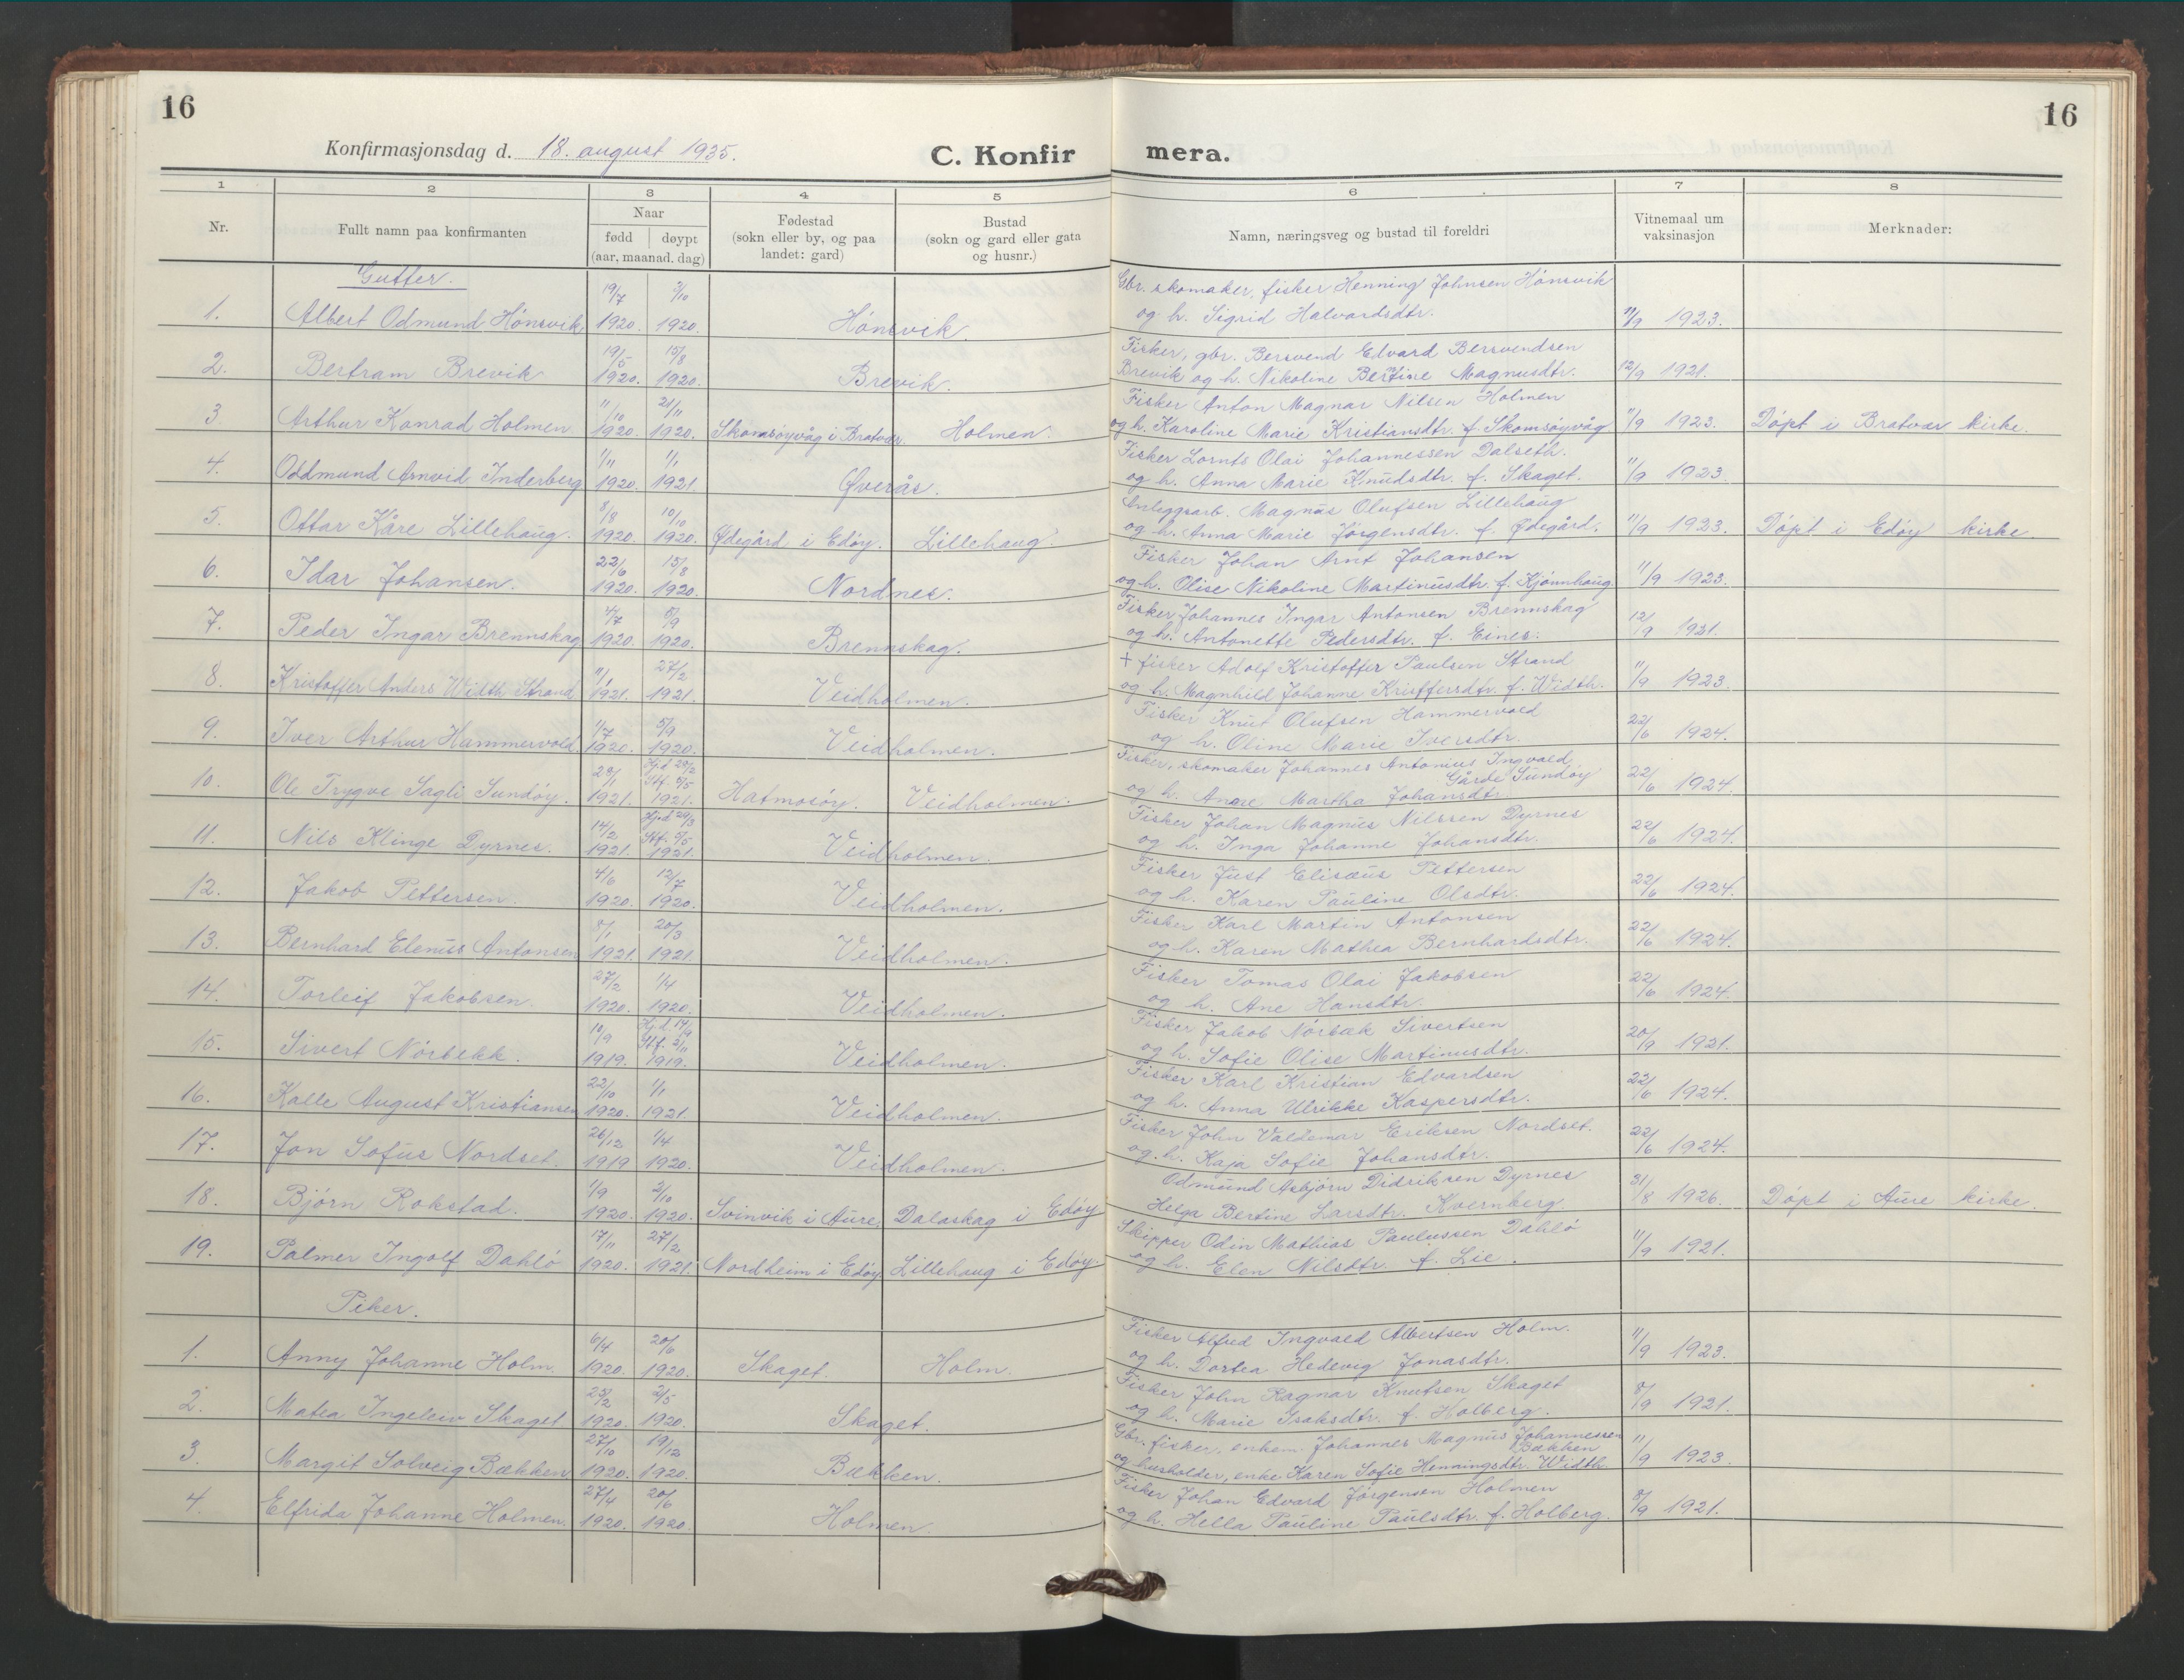 16
16
Konfirmasjonsdag d. 18. august 1935.
C. Konfir mera.
1 2 3 4 5 6 7 8
Nr.
Fullt namn paa konfirmanten
Naar
fødd døypt
(aar, maanad. dag)
Fødestad
(sokn eller by, og paa
landet: gard)
Bustad
(sokn og gard eller gata
og husnr.)
Namn, næringsveg og bustad til foreldri
Vitnemaal um
vaksinasjon
Merknader:
Gutter.
19/7 3/10 Gbr. skomaker, fisker Henning Johnsen Hónsvik
1. Albert Odmund Hónsvik 1920. 1920. Hónsvik. og h. Sigrid Halvardsdtr. 11/9 1923.
19/5 15/8 Fisker, gbr. Bersvend Edvard Bersvendsen
2. Bertram Brevik 1920. 1920. Brevik. Brevik og h. Nikoline Bertine Magnusdtr. 12/9 1921.
11/10 21/11 Fisker Anton Magnar Nilsen Holmen
3. Arthur Konrad Holmen 1920. 1920. Skomsøyvåg i Bratvær Holmen. og h. Karoline Marie Kristiansdtr. f. Skomsøyvåg 11/9 1923. Dópt i Bratvær kirke.
1/11 1/1 Fisker Lornts Olai Johannessen Dalseth.
4. Oddmund Arnvid Inderberg 1920. 1921. Øverås. og h. Anna Marie Knudsdtr. f. Skaget. 11/9 1923.
8/8 10/10 Anleggsarb. Magnus Olufsen Lillehaug
5. Ottar Kåre Lillehaug. 1920. 1920. Ødegård i Edøy. Lillehaug. og h. Anna Marie Jørgensdtr. f. Ødegård. 11/9 1923. Dópt i Edøy kirke.
22/6 15/8 Fisker Johan Arnt Johansen
6. Idar Johansen. 1920. 1920. Nordnes. og h. Olise Nikoline Martinusdtr. f. Kjónnhaug 11/9 1923.
4/7 5/9 Fisker Johannes Ingar Antonsen Brennskag
7. Peder Ingar Brennskag 1920. 1920. Brennskag. og h. Antonette Pedersdtr. f. Eines. 12/9 1921.
11/1 27/2 + fisker Adolf Kristoffer Paulsen Strand
8. Kristoffer Anders Width Strand 1921. 1921. Veidholmen. og h. Magnhild Johanne Kristfersdtr. f. Width. 11/9 1923.
1/7 5/9 Fisker Knut Olufsen Hammervold
9. Iver Arthur Hammervold. 1920. 1920. Veidholmen. og h. Oline Marie Iversdtr. 22/6 1924.
23/1 Hjd 29/2 Stf. 5/5 Fisker, skomaker Johannes Antonius Ingvald
Gårde Sundóy
10. Ole Trygve Sagli Sundóy. 1921. 1921. Hatmosóy. Veidholmen. og h. Anne Martha Johansdtr. 22/6 1924.
14/2 Hjd 29/3 Stf. 5/5 Fisker Johan Magnus Nilssen Dyrnes
11. Nils Klinge Dyrnes. 1921. 1921. Veidholmen. og h. Inga Johanne Johansdtr. 22/6 1924.
4/6 12/7 Fisker Just Elisæus Pettersen
12. Jakob Pettersen. 1920. 1920. Veidholmen. og h. Karen Pauline Olsdtr. 22/6 1924.
8/1 20/3 Fisker Karl Martin Antonsen
13. Bernhard Elenius Antonsen 1921. 1921. Veidholmen. og h. Karen Mathea Bernhardsdtr. 22/6 1924.
27/2 1/4 Fisker Tomas Olai Jakobsen
14. Torleif Jakobsen. 1920. 1920. Veidholmen. og h. Ane Hansdtr. 22/6 1924.
10/9 Hjd. 14/9 Stf. 2/11 Fisker Jakob Nórbæk Sivertsen
15. Sivert Nórbekk. 1919. 1919. Veidholmen. og h. Sofie Olise Martinusdtr. 20/9 1921.
22/10 1/1 Fisker Karl Kristian Edvardsen
16. Kalle August Kristiansen 1920. 1921. Veidholmen. og h. Anna Ulrikke Kaspersdtr. 22/6 1924.
26/12 1/4 Fisker John Valdemar Eriksen Nordset.
17. Jon Sofus Nordset. 1919 1920. Veidholmen. og. h. Kaja Sofie Johansdtr. 22/6 1924.
1/9 3/10 Odmund Asbjórn Didriksen Dyrnes
18. Bjórn Rokstad. 1920. 1920. Svinvik i Aure. Dalaskag i Edóy Helga Bertine Larsdtr. Kvernberg. 31/8 1926. Dópt i Aure kirke.
17/11 27/2 Skipper Odin Mathias Paulussen Dahló
19. Palmer Ingolf Dahló 1920. 1921. Nordheim i Edóy Lillehaug i Edóy. og h. Elen Nilsdtr. f. Lie. 11/9 1921.
Piker.
6/4 20/6 Fisker Alfred Ingvald Albertsen Holm.
1. Anny Johanne Holm. 1920. 1920. Skaget. Holm. og h. Dortea Hedevig Jonasdtr. 11/9 1923.
23/2 2/5 Fisker John Ragnar Knutsen Skaget
2. Matea Ingeleiv Skaget 1920. 1920. Skaget. og h. Marie Isaksdtr. f. Holberg. 8/9 1921.
27/10 19/12 Gbr. fisker, enkem. Johannes Magnus Johannessen
Bækken
3. Margit Solveig Bækken 1920. 1920. Bækken. og husholder, enke Karen Sofie Henningsdtr. Width 11/9 1923.
27/4 20/6 Fisker Johan Edvard Jórgensen Holmen
4. Elfrida Johanne Holmen. 1920. 1920. Holmen. og h. Hella Pauline Paulsdtr. f. Holberg. 8/9 1921.